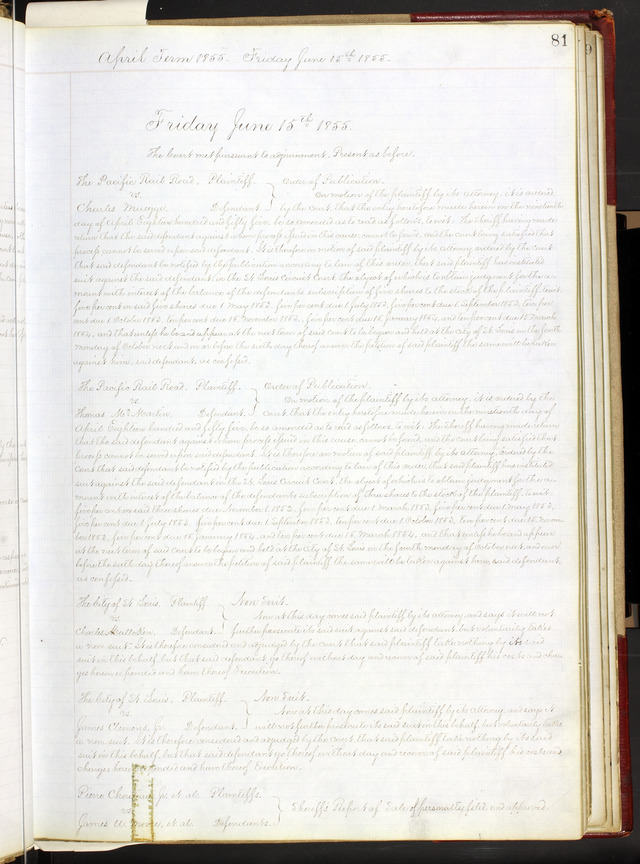 81
April Term 1855. Friday June 15th 1855.
Friday June 15th 1855.
The Court met pursuant to adjournment. Present as before.
The Pacific Rail Road, Plaintiff. Order of Publication.
vs. On motion of the plaintiff by its attorney, it is ordered
Charles Defendant. by the court that the entry heretofore made herein on the nineteenth
day of April Eighteen hundred and fifty five, be so amended as to read as follows, to wit. The Sheriff having made
return that the said defendant against whom process issued in this cause cannot be found, and the court being satisfied that
process cannot be served upon said defendant. It is therefore on motion of said plaintiff by its attorney ordered by the court
that said defendant be notified by the publication according to law of this order, that said plaintiff has instituted
suit against the said defendant in the St. Louis Circuit Court, the object of which is to obtain judgment for the a-
mount with interest of the balance of the defendants subscription of five shares to the stock of the plaintiff, to wit:
five per cent on said five shares due 1 May 1852, five per cent due 1 July 1852, five per cent due 1 September 1852, ten per
cent due 1 October 1853, ten per cent due 15 November 1853, five per cent due 15 January 1854, and ten per cent due 15 March
1854, and that unless he be and appear at the next term of said court to be begun and held at the city of St. Louis on the fourth
monday of October next and on or before the sixth day thereof answer the petition of said plaintiff the same will be taken
against him, said defendant, as confessed.
The Pacific Rail Road, Plaintiff. Order of Publication.
vs. On motion of the plaintiff by its attorney, it is ordered by the
Thomas Mc Martin, Defendant. court that the entry heretofore made herein on the nineteenth day of
April Eighteen hundred and fifty five, be so amended as to read as follows, to wit. The Sheriff having made return
that the said defendant against whom process issued in this cause, cannot be found, and the court being satisfied that
process cannot be served upon said defendant. It is therefore on motion of said plaintiff by its attorney, ordered by the
Court that said defendant be notified by the publication according to law of this order, that said plaintiff has instituted
suit against the said defendant in the St. Louis Circuit Court, the object of which is to obtain judgment for the a-
mount with interest of the balance of the defendants subscription of five shares to the stock of the plaintiff, to wit:
five per cent on said five shares due November 1852, five per cent due 1 March 1853, five per cent due 1 May 1853,
five per cent due 1 July 1853, five per cent due 1 September 1853, ten per cent due 1 October 1853, ten per cent due 15 Novem-
ber 1853, five per cent due 15 January 1854, and ten per cent due 15 March 1854, and that unless he be and appear
at the next term of said court to be begun and held at the City of St. Louis on the fourth monday of October next, and on or
before the sixth day thereof answer the petition of said plaintiff the same will be taken against him, said defendant,
as confessed.
The City of St. Louis, Plaintiff Non Suit.
vs. Now at this day comes said plaintiff by its attorney and says it will not
Charles Defendant. further prosecute its said suit against said defendant, but voluntarily takes
a non suit. It is therefore considered and adjudged by the court that said plaintiff take nothing by its said
suit in this behalf, but that said defendant, go thereof without day and recover of said plaintiff his costs and char-
ges herein expended and have thereof execution.
The City of St. Louis, Plaintiff. Non Suit.
vs. Now at this day comes said Plaintiff by its attorney and says it
James Clemens, Jr. Defendant. will not further prosecute its said suit in this behalf, but voluntarily takes
a non suit. It is therefore considered and adjudged by the court, that said plaintiff take nothing by its said
suit in this behalf, but that said defendant go thereof without day and recover of said plaintiff his costs and
charges herein expended and have thereof Execution.
Pierre Chouteau, Jr. et al. Plaintiffs.
vs. Sheriffs Report of Sale of personalty filed and approved.
James et al. Defendants.